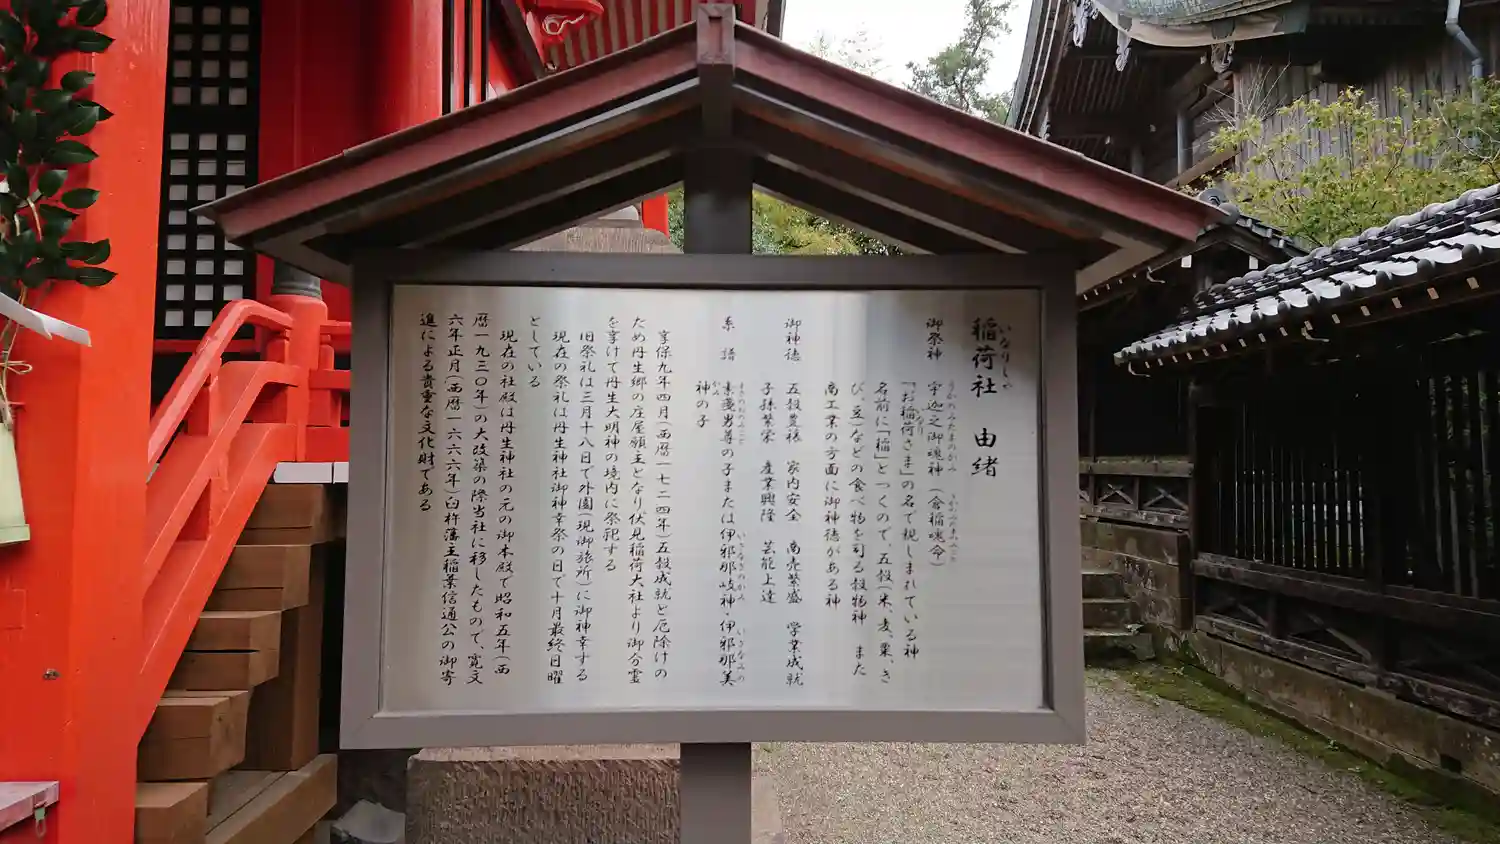 稲荷社　由緒
いなりしゃ
御祭神　宇迦之御魂神（倉稲魂命）
うかのみたまのかみ
「お稲荷さま」の名で親しまれている神
いなり
名前に「稲」とつくので、五穀（米、麦、粟、き
び、豆）などの食べ物を司る穀物神　また
商工業の方面に御神徳がある神
御神徳　五穀豊穣　家内安全　商売繁盛　学業成就
子孫繁栄　産業興隆　芸能上達
系譜　素戔男尊の子または伊邪那岐神・伊邪那美
神の子
享保九年四月（西暦一七二四年）五穀成就と厄除けの
ため丹生郷の庄屋願主となり伏見稲荷大社より御分霊
を享けて丹生大明神の境内に祭祀する
旧祭礼は三月十八日で外園（現御旅所）に御神幸する
現在の祭礼は丹生神社御神幸祭の日で十月最終日曜
としている
現在の社殿は丹生神社の元の御本殿で昭和五年（西
暦一九三〇年）の大改築の際当社に移したもので、寛文
六年正月（西暦一六六六年）臼杵藩主稲葉信通公の御寄
進による貴重な文化財である